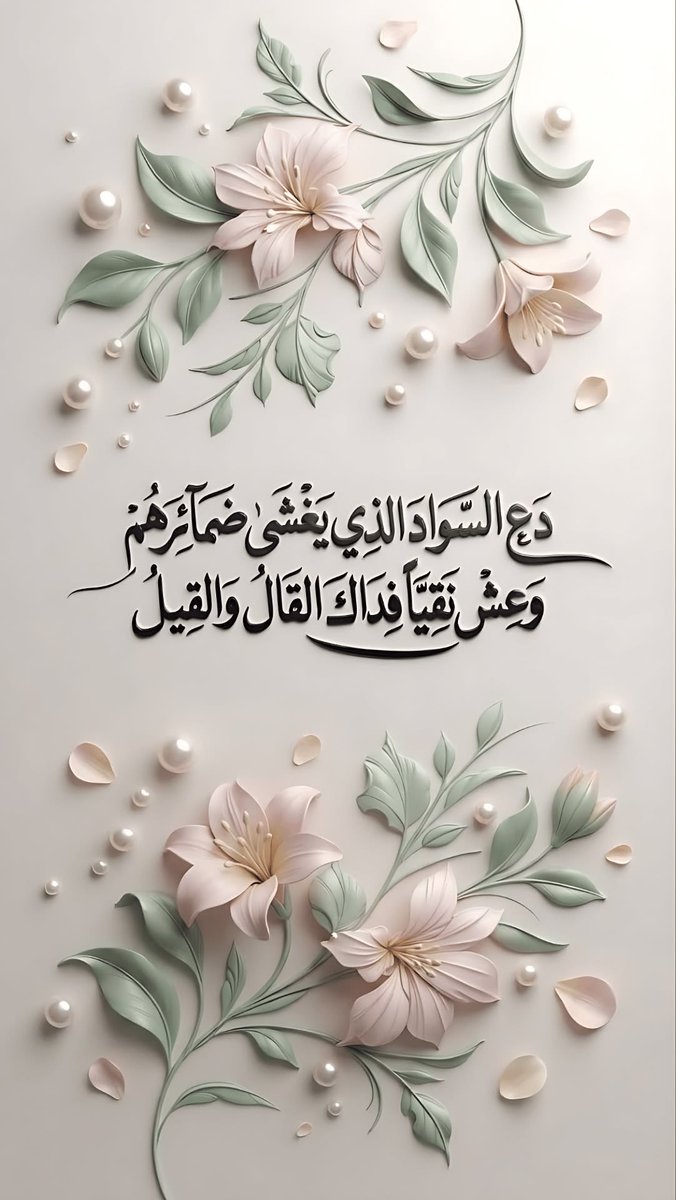 دَعِ السَّوَادَ الذِي يَغْشَىٰ ضَمَآئِرَهُمْ
وَعِشْ نَقِيَّاً فِدَاكَ القَالُ وَالقِيلُ